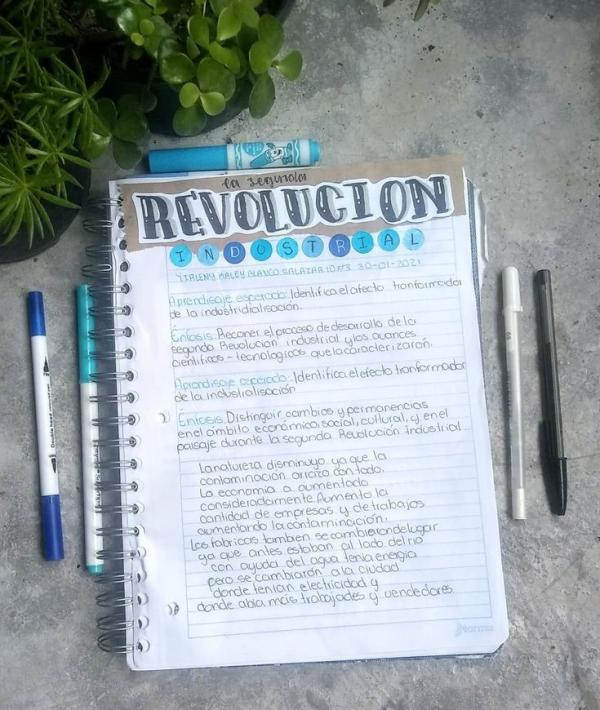 la segunda
REVOLUCION
INDUSTRIAL
YIRLENY HALEY BLANCO SALAZAR 10#3 30-01-2021
Aprendisaje esperado: Identifica el efecto tranformador
de la industridialisación.
Énfasis: Reconer el proceso de desarrollo de la
segunda Revolucion industrial y los avances
cientificos-tecnologicos que la caracterizaron.
Aprendisaje esperado: Identifica el efecto tranformador
de la industrialisación
Énfasis: Distinguir cambios y permanencias
en el ámbito económico, social, cultural, y en el
paisaje durante la segunda Revolución Industrial
La naturleza disminuyo ya que la
contaminación arrazo con todo.
La economia a aumentado
consideradamente. Aumento la
cantidad de empresas y de trabajos
aumentando la contaminación.
Las fabricas tambien se cambiaron de lugar
ya que antes estaban al lado del rio
con ayuda del agua tenia energia
pero se cambiarón a la ciudad
donde tenian electricidad y
donde abia más trabajades y vendedores.
Norma